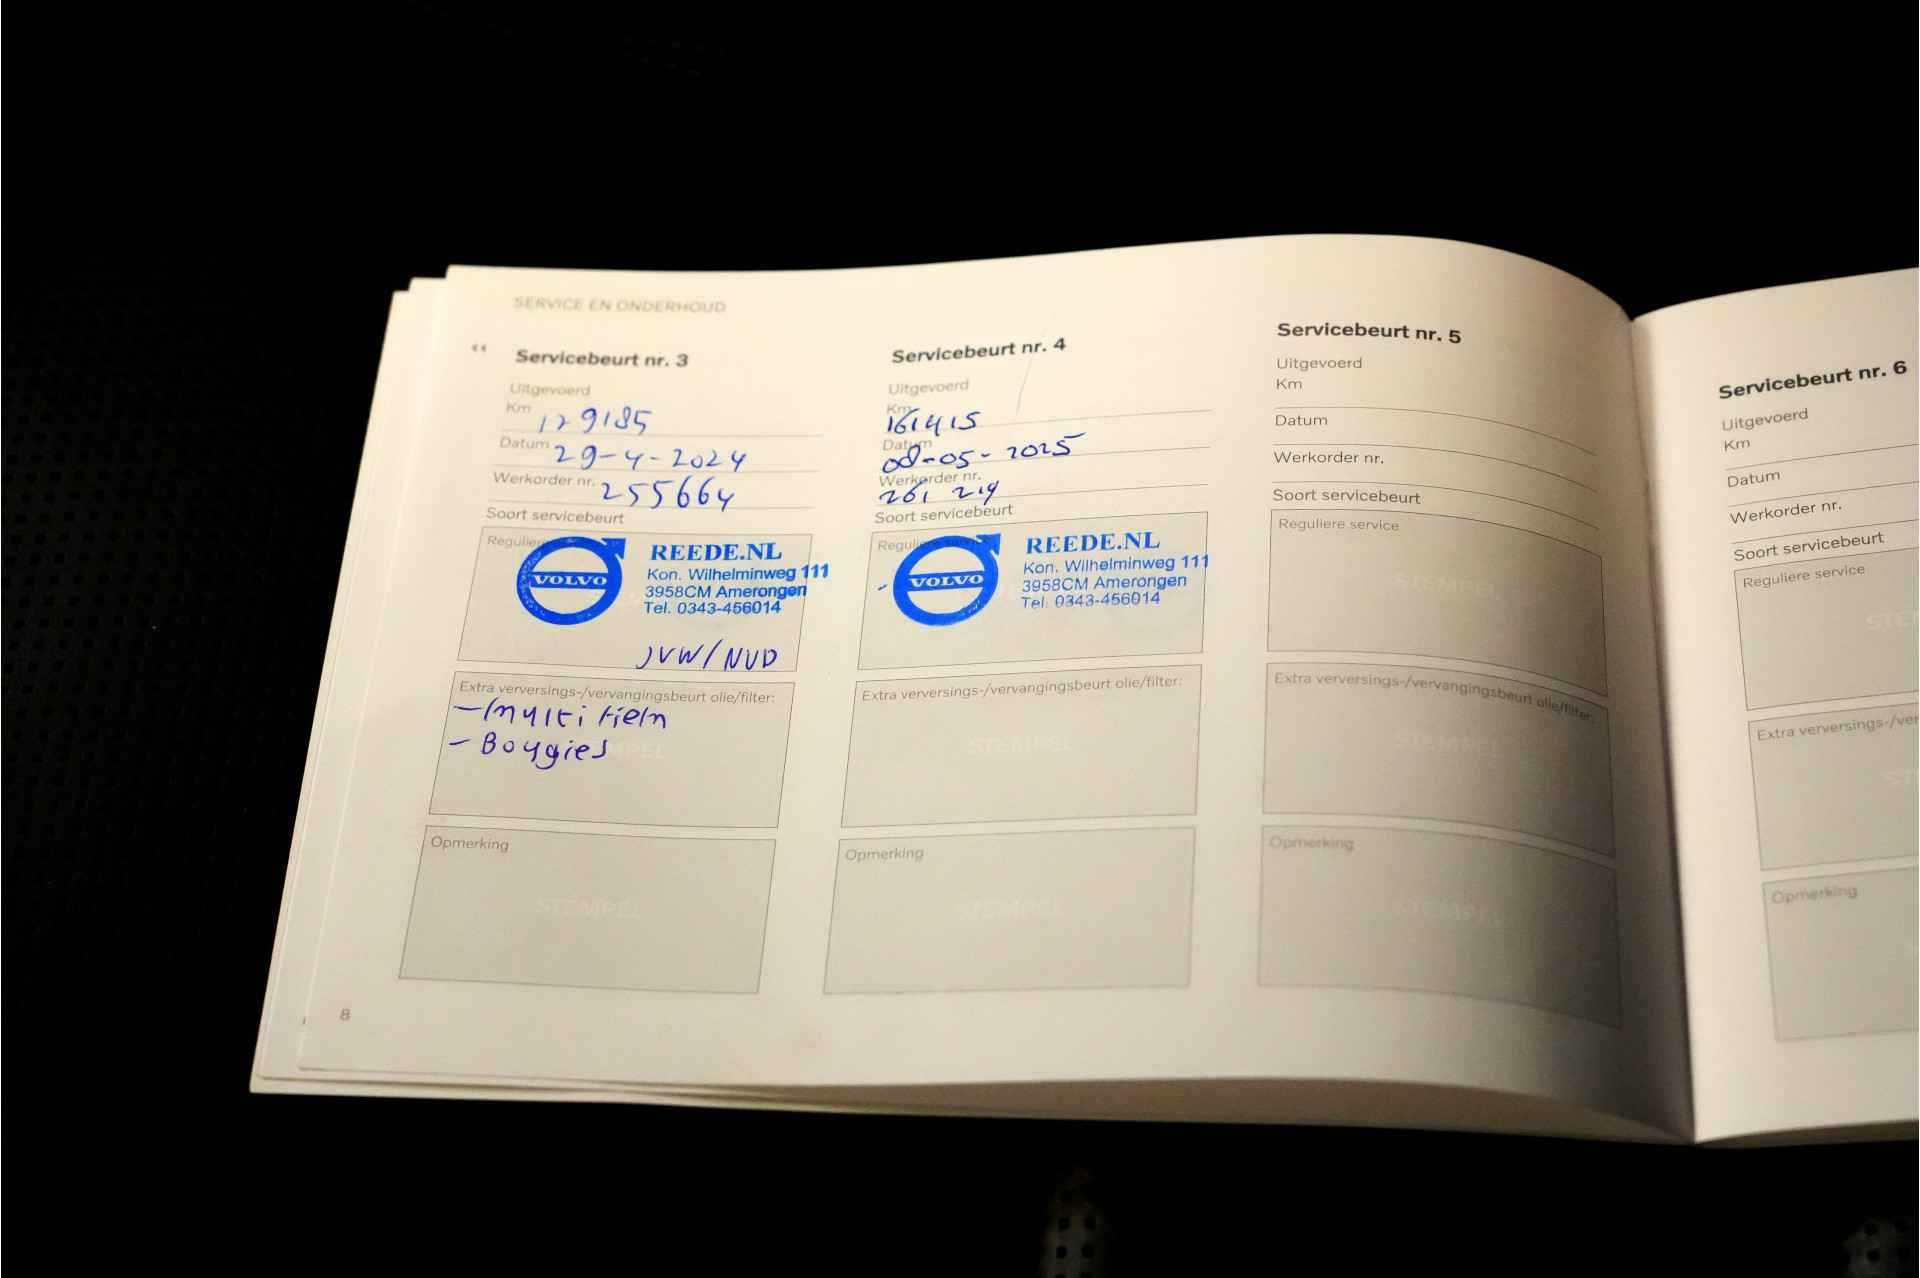 SERVICE EN ONDERHOUD
Servicebeurt nr. 3
Uitgevoerd
Km 129185
Datum 29-4-2024
Werkorder nr. 255664
Soort servicebeurt
Reguliere
VOLVO
REEDE.NL
Kon. Wilhelminweg 111
3958CM Amerongen
Tel. 0343-456014
JVW/NVD
Extra verversings-/vervangingsbeurt olie/filter:
- multi riem
- Bougies
STEMPEL
Opmerking
STEMPEL
8
Servicebeurt nr. 4
Uitgevoerd
Km 161415
Datum 08-05-2025
Werkorder nr. 261 219
Soort servicebeurt
Reguliere service
VOLVO
REEDE.NL
Kon. Wilhelminweg 111
3958CM Amerongen
Tel. 0343-456014
Extra verversings-/vervangingsbeurt olie/filter:
STEMPEL
Opmerking
STEMPEL
Servicebeurt nr. 5
Uitgevoerd
Km
Datum
Werkorder nr.
Soort servicebeurt
Reguliere service
STEMPEL
Extra verversings-/vervangingsbeurt olie/filter:
STEMPEL
Opmerking
STEMPEL
Servicebeurt nr. 6
Uitgevoerd
Km
Datum
Werkorder nr.
Soort servicebeurt
Reguliere service
STE
Extra verversings-/ver
ST
Opmerking